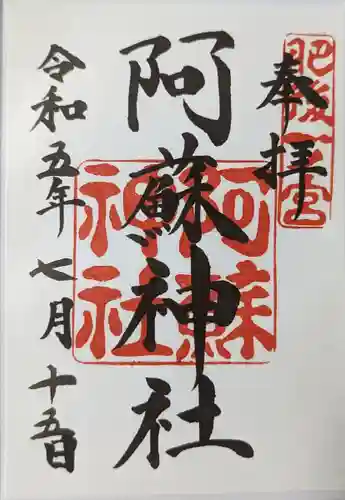 奉拝
肥後一之宮
阿蘇神社
阿蘇神社
令和五年七月十五日